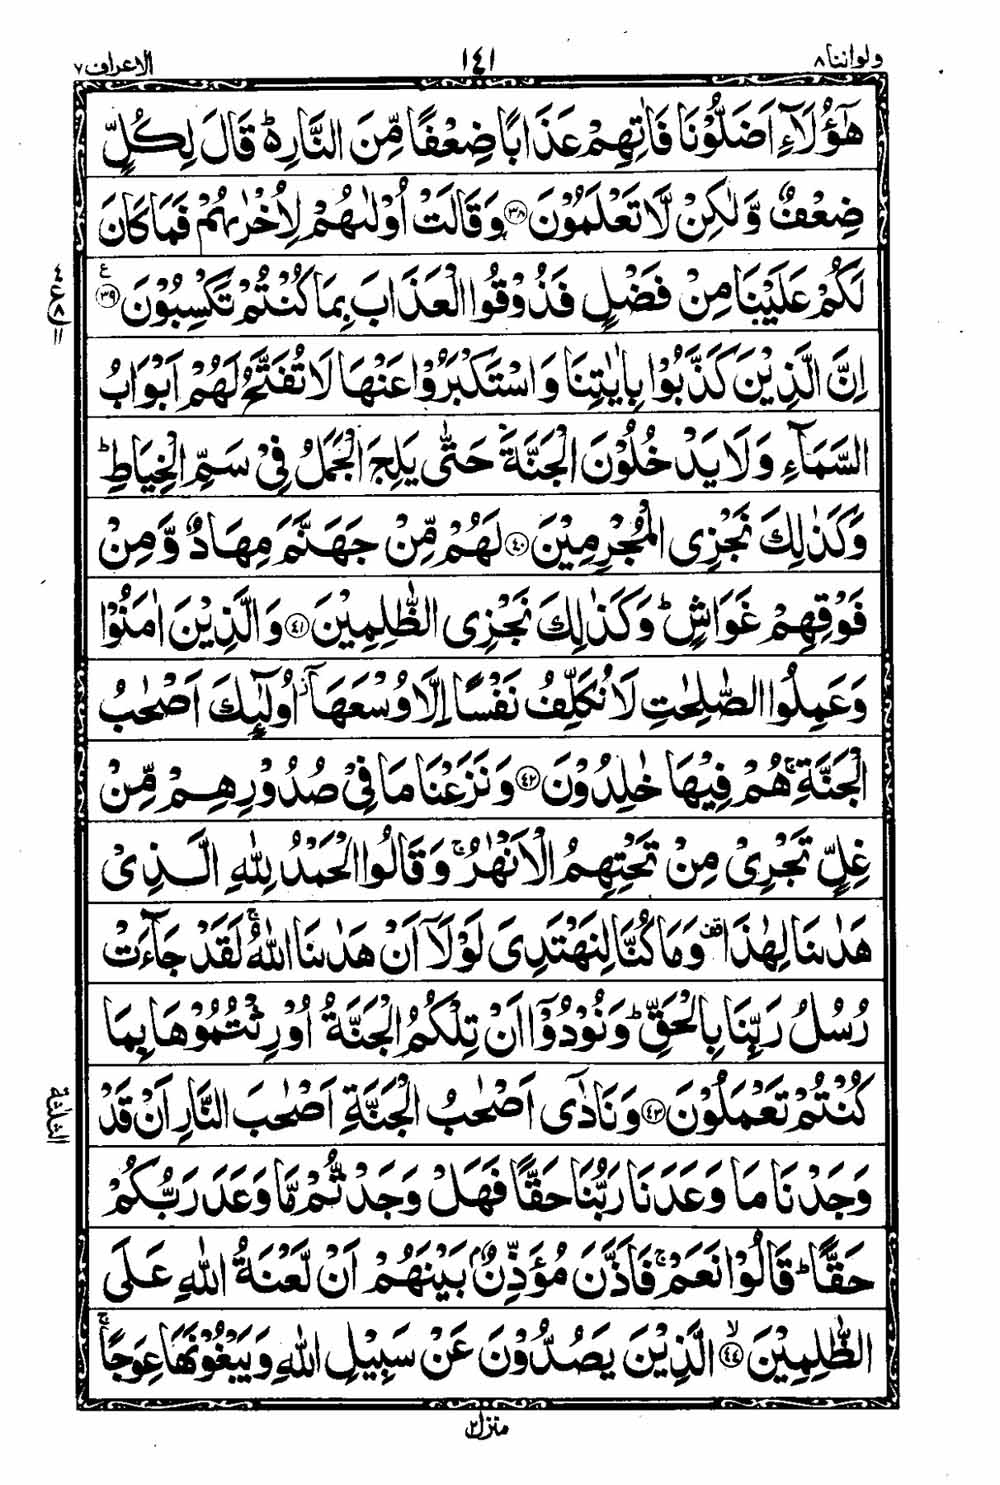 ولواننا ٨ ١٤١ الاعراف ٧
هٰٓؤُلَآءِ اَضَلُّوْنَا فَاٰتِهِمْ عَذَابًا ضِعْفًا مِّنَ النَّارِ ؕ۬ قَالَ لِكُلٍّ
ضِعْفٌ وَّلٰكِنْ لَّا تَعْلَمُوْنَ ﴿۳۸﴾ وَقَالَتْ اُوْلٰىهُمْ لِاُخْرٰىهُمْ فَمَا كَانَ
لَكُمْ عَلَيْنَا مِنْ فَضْلٍ فَذُوْقُوا الْعَذَابَ بِمَا كُنْتُمْ تَكْسِبُوْنَ ﴿۳۹﴾ ع
٤ ع ٨ ١١
اِنَّ الَّذِيْنَ كَذَّبُوْا بِاٰيٰتِنَا وَاسْتَكْبَرُوْا عَنْهَا لَا تُفَتَّحُ لَهُمْ اَبْوَابُ
السَّمَآءِ وَلَا يَدْخُلُوْنَ الْجَنَّةَ حَتّٰى يَلِجَ الْجَمَلُ فِيْ سَمِّ الْخِيَاطِ ؕ
وَكَذٰلِكَ نَجْزِى الْمُجْرِمِيْنَ ﴿۴۰﴾ لَهُمْ مِّنْ جَهَنَّمَ مِهَادٌ وَّمِنْ
فَوْقِهِمْ غَوَاشٍ ؕ وَكَذٰلِكَ نَجْزِى الظّٰلِمِيْنَ ﴿۴۱﴾ وَالَّذِيْنَ اٰمَنُوْا
وَعَمِلُوا الصّٰلِحٰتِ لَا نُكَلِّفُ نَفْسًا اِلَّا وُسْعَهَاۤ ز اُولٰٓئِكَ اَصْحٰبُ
الْجَنَّةِ ۚ هُمْ فِيْهَا خٰلِدُوْنَ ﴿۴۲﴾ وَنَزَعْنَا مَا فِيْ صُدُوْرِهِمْ مِّنْ
غِلٍّ تَجْرِيْ مِنْ تَحْتِهِمُ الْاَنْهٰرُ ۚ وَقَالُوا الْحَمْدُ لِلّٰهِ الَّذِيْ
هَدٰىنَا لِهٰذَا قف وَمَا كُنَّا لِنَهْتَدِىَ لَوْلَاۤ اَنْ هَدٰىنَا اللّٰهُ ۚ لَقَدْ جَآءَتْ
رُسُلُ رَبِّنَا بِالْحَقِّ ؕ وَنُوْدُوْۤا اَنْ تِلْكُمُ الْجَنَّةُ اُوْرِثْتُمُوْهَا بِمَا
كُنْتُمْ تَعْمَلُوْنَ ﴿۴۳﴾ وَنَادٰۤى اَصْحٰبُ الْجَنَّةِ اَصْحٰبَ النَّارِ اَنْ قَدْ
الثلثة
وَجَدْنَا مَا وَعَدَنَا رَبُّنَا حَقًّا فَهَلْ وَجَدْتُّمْ مَّا وَعَدَ رَبُّكُمْ
حَقًّا ؕ قَالُوْا نَعَمْ ۚ فَاَذَّنَ مُؤَذِّنٌۢ بَيْنَهُمْ اَنْ لَّعْنَةُ اللّٰهِ عَلَى
الظّٰلِمِيْنَ ۙ﴿۴۴﴾ الَّذِيْنَ يَصُدُّوْنَ عَنْ سَبِيْلِ اللّٰهِ وَيَبْغُوْنَهَا عِوَجًا ۚ
منزل ٢